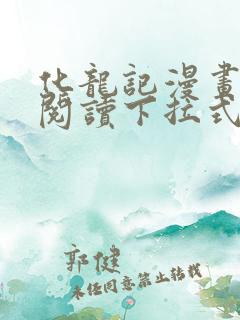 化龍記漫畫
閱讀下拉式
郭健
未任同意禁止转载